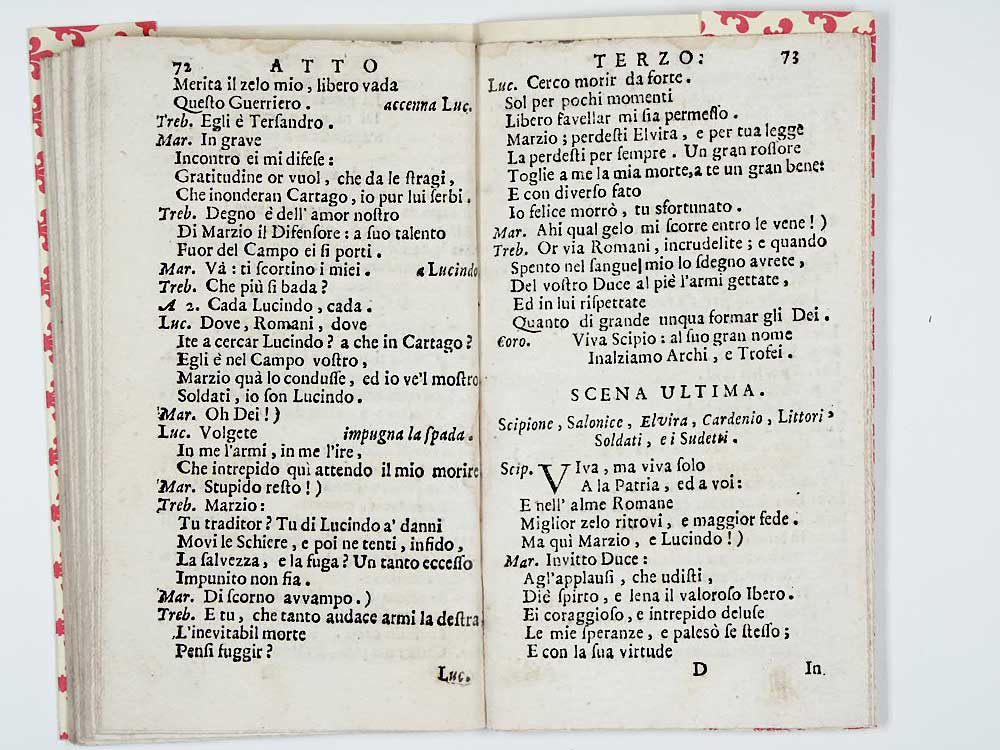 72 ATTO
Merita il zelo mio, libero vada
Queſto Guerriero. accenna Luc.
Treb. Egli è Terſandro.
Mar. In grave
Incontro ei mi difeſe:
Gratitudine or vuol, che da le ſtragi,
Che inonderan Cartago, io pur lui ſerbi.
Treb. Degno è dell' amor noſtro
Di Marzio il Difenſore: a ſuo talento
Fuor del Campo ei ſi porti.
Mar. Và: ti ſcortino i miei. a Lucindo
Treb. Che più ſi bada?
A 2. Cada Lucindo, cada.
Luc. Dove, Romani, dove
Ite a cercar Lucindo? a che in Cartago?
Egli è nel Campo voſtro,
Marzio quà lo conduſſe, ed io ve'l moſtro
Soldati, io ſon Lucindo.
Mar. Oh Dei!)
Luc. Volgete impugna la ſpada.
In me l'armi, in me l'ire,
Che intrepido quì attendo il mio morire
Mar. Stupido reſto!)
Treb. Marzio:
Tu traditor? Tu di Lucindo a' danni
Movi le Schiere, e poi ne tenti, infido,
La ſalvezza, e la fuga? Un tanto ecceſſo
Impunito non fia.
Mar. Di ſcorno avvampo.)
Treb. E tu, che tanto audace armi la deſtra
L'inevitabil morte
Penſi fuggir?
Luc.
TERZO: 73
Luc. Cerco morir da forte.
Sol per pochi momenti
Libero favellar mi ſia permeſſo.
Marzio; perdeſti Elvira, e per tua legge
La perdeſti per ſempre. Un gran roſſore
Toglie a me la mia morte, a te un gran bene:
E con diverſo fato
Io felice morrò, tu sfortunato.
Mar. Ahi qual gelo mi ſcorre entro le vene!)
Treb. Or via Romani, incrudelite; e quando
Spento nel ſangue mio lo ſdegno avrete,
Del voſtro Duce al piè l'armi gettate,
Ed in lui riſpettate
Quanto di grande unqua formar gli Dei.
Coro. Viva Scipio: al ſuo gran nome
Inalziamo Archi, e Trofei.
SCENA ULTIMA.
Scipione, Salonice, Elvira, Cardenio, Littori,
Soldati, e i Sudetti.
Scip. VIva, ma viva ſolo
A la Patria, ed a voi:
E nell' alme Romane
Miglior zelo ritrovi, e maggior fede.
Ma quì Marzio, e Lucindo!)
Mar. Invitto Duce:
Agl'applauſi, che udiſti,
Diè ſpirto, e lena il valoroſo Ibero.
Ei coraggioſo, e intrepido deluſe
Le mie ſperanze, e palesò ſe ſteſſo;
E con la ſua virtude
D In